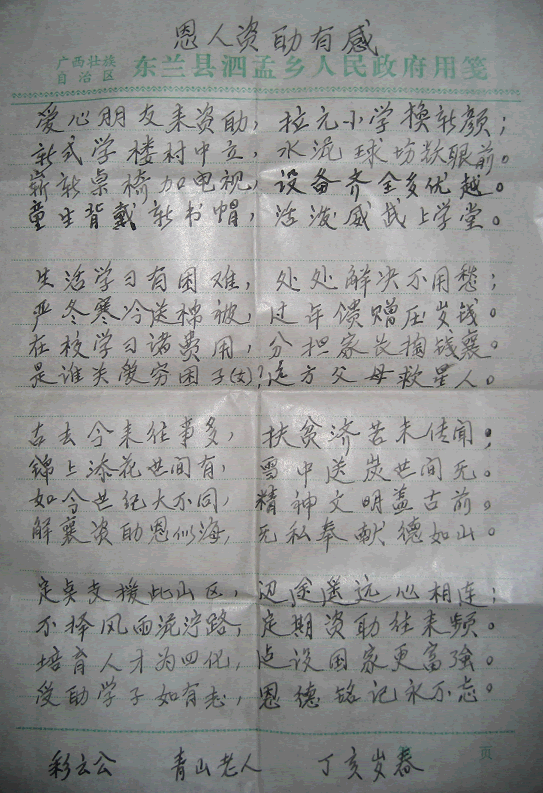 恩人资助有感
广西壮族
自治区
东兰县泗孟乡人民政府用笺
爱心朋友来资助，拉元小学换新颜；
新式学楼村中立，水泥球场款眼前。
崭新桌椅加电视，设备齐全多优越。
童生背戴新书帽，活泼威武上学堂。
生活学习有困难，处处解决不用愁；
严冬寒冷送棉被，过年馈赠压岁钱。
在校学习诸费用，分担家长掏钱囊。
是谁关爱穷困子(女)？远方父母救星人。
古去今来往事多，扶贫济苦未传闻；
锦上添花世间有，雪中送炭世间无。
如今世纪大不同，精神文明盖古前。
解囊资助恩似海，无私奉献德如山。
定点支援此山区，迢途遥远心相连；
不择风雨流泞路，定期资助往来频。
培育人才为四化，点设国家更富强。
受助学子如有志，恩德铭记永不忘。
页
彩云公 青山老人 丁亥岁春